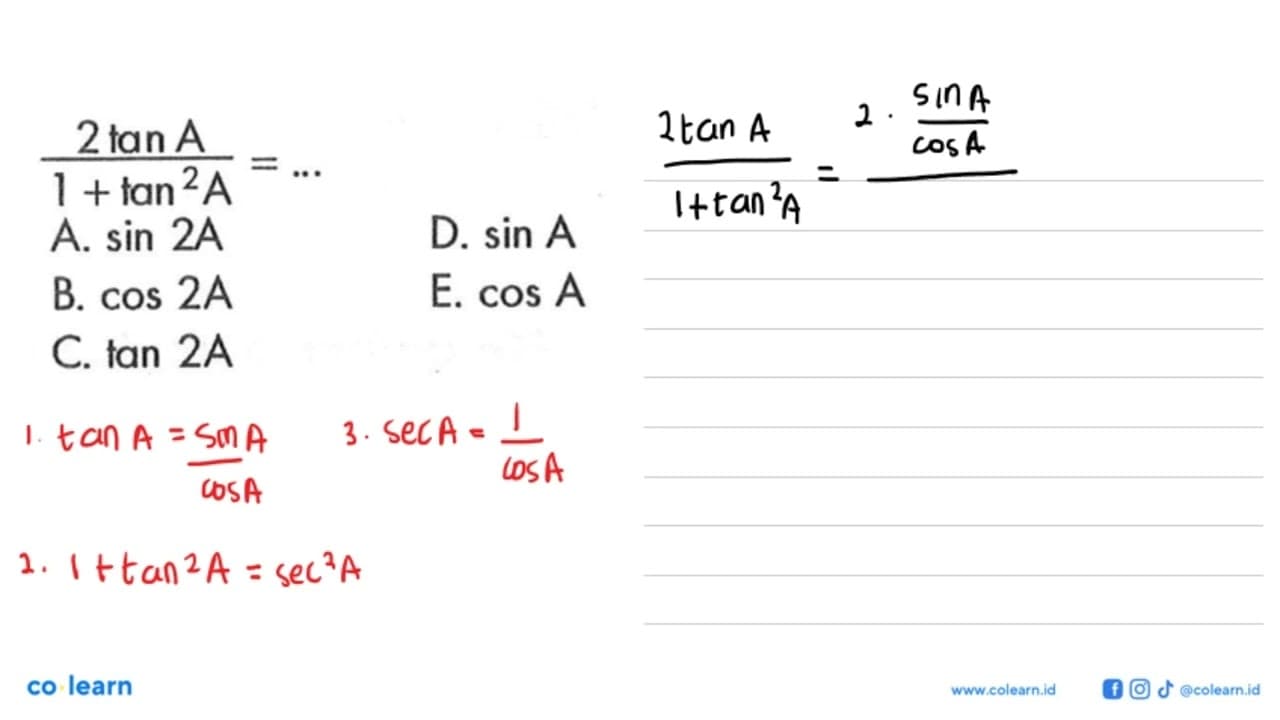 2 tan A / 1 + tan²A = ...
A. sin 2A
B. cos 2A
C. tan 2A
D. sin A
E. cos A
1. tan A = sin A / cos A
2. 1 + tan²A = sec²A
3. sec A = 1 / cos A
2 tan A / 1 + tan²A = 2 . sin A / cos A
co learn
www.colearn.id
@colearn.id